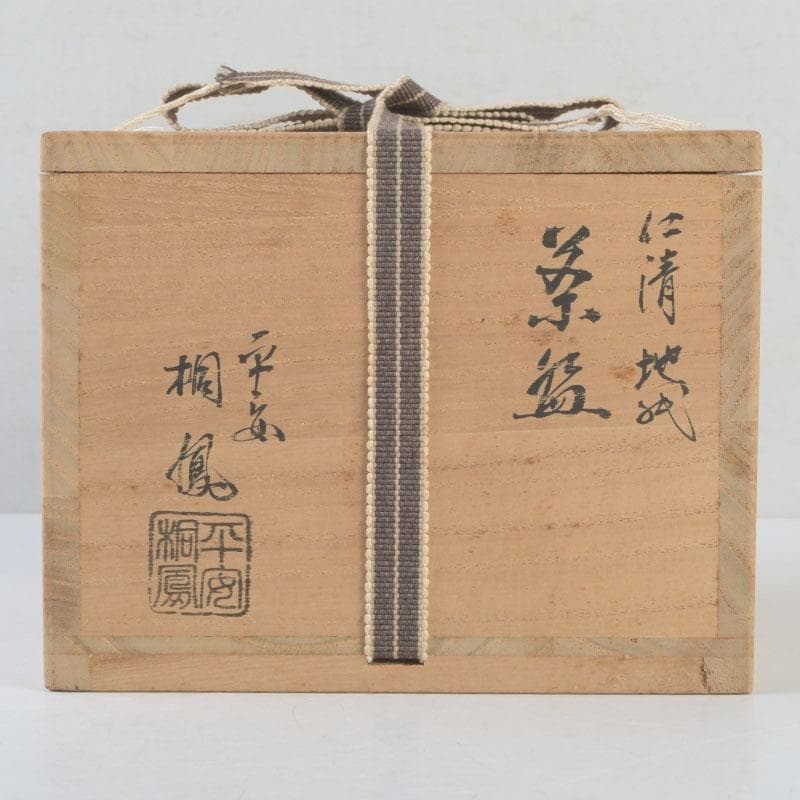 仁清 地紋
茶盌
平安
桐鳳
平安
桐鳳